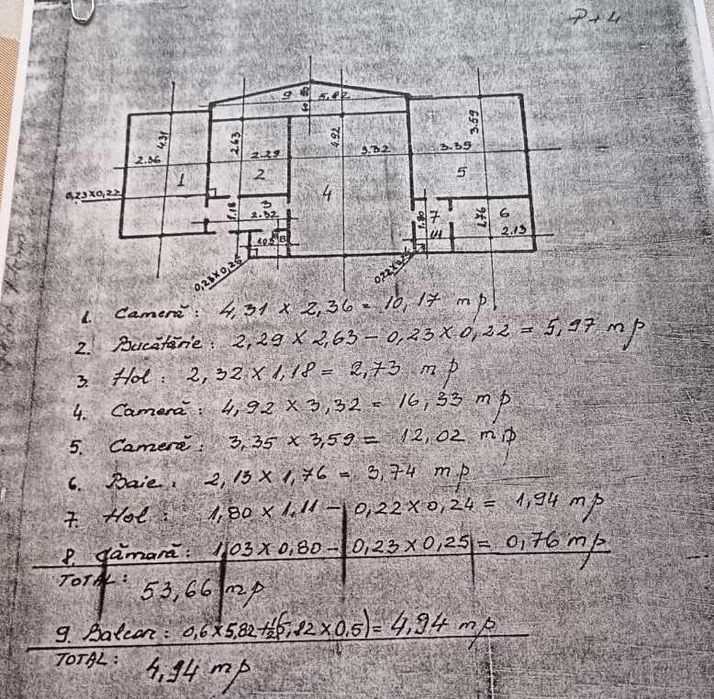 P+4
9 0.80 5,82
4.31 2.63 4.92 3.59
2.36 2.29 3.32 3.35
1 2 4 5
0,23x0,22
1.18 3 2.32 7 1.80 1.76 6
1.03 8 1.11 2.13
0,23x0,25
1. Cameră: 4,31 x 2,36 = 10,17 mp
2. Bucătărie: 2,29 x 2,63 - 0,23 x 0,22 = 5,97 mp
3. Hol: 2,32 x 1,18 = 2,73 mp
4. Cameră: 4,92 x 3,32 = 16,33 mp
5. Cameră: 3,35 x 3,59 = 12,02 mp
6. Baie: 2,13 x 1,76 = 3,74 mp
7. Hol: 1,80 x 1.11 - 0,22 x 0,24 = 1,94 mp
8. Cămară: 1,03 x 0,80 - 0,23 x 0,25 = 0,76 mp
TOTAL: 53,66 mp
9. Balcon: 0,6 x 5,82 + 1/2(5,82 x 0,5) = 4,94 mp
TOTAL: 4,94 mp